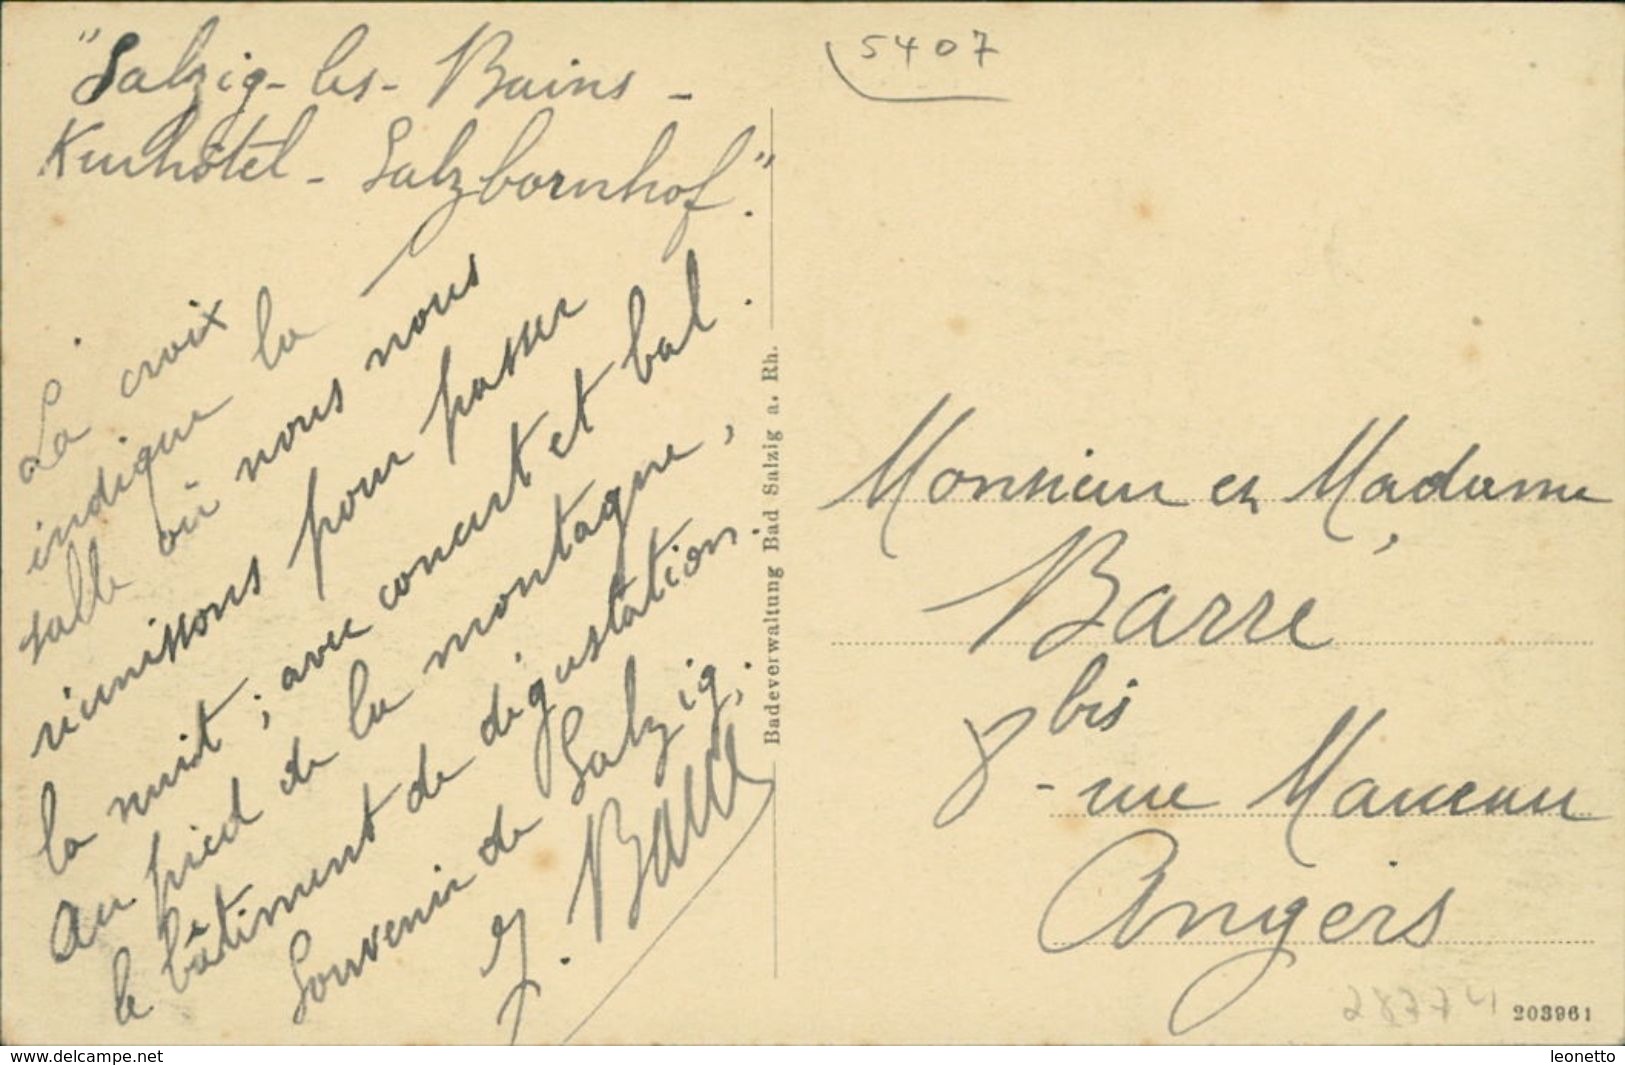 "Salzig-les-Bains-
Kurhôtel-Salzbornhof."
La croix
indique la
salle où nous nous
réunissons pour passer
la nuit; avec concert et bal.
Au pied de la montagne,
le bâtiment de dégustation.
Souvenir de Salzig.
J.
Badeverwaltung Bad Salzig a. Rh.
5407
Monsieur et Madame
Barré
8 bis - rue Manceau
Angers
28774
203961
www.delcampe.net
leonetto